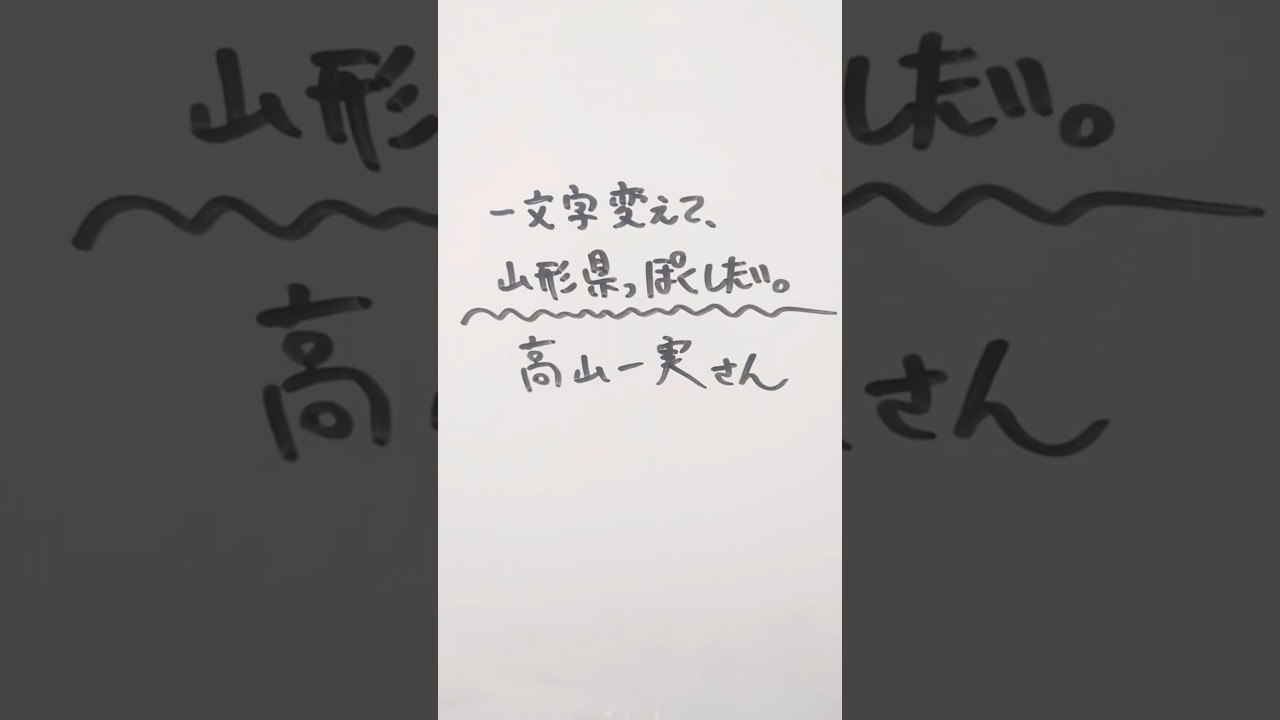 一文字変えて、
山形県っぽくしたい。
高山一実さん